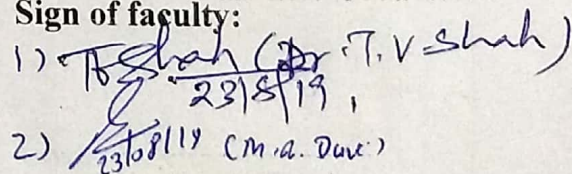 Sign of faculty:
1) TVShah (Dr. T. V. Shah)
23/8/19,
2) 23/08/19 (M.A. Dave)